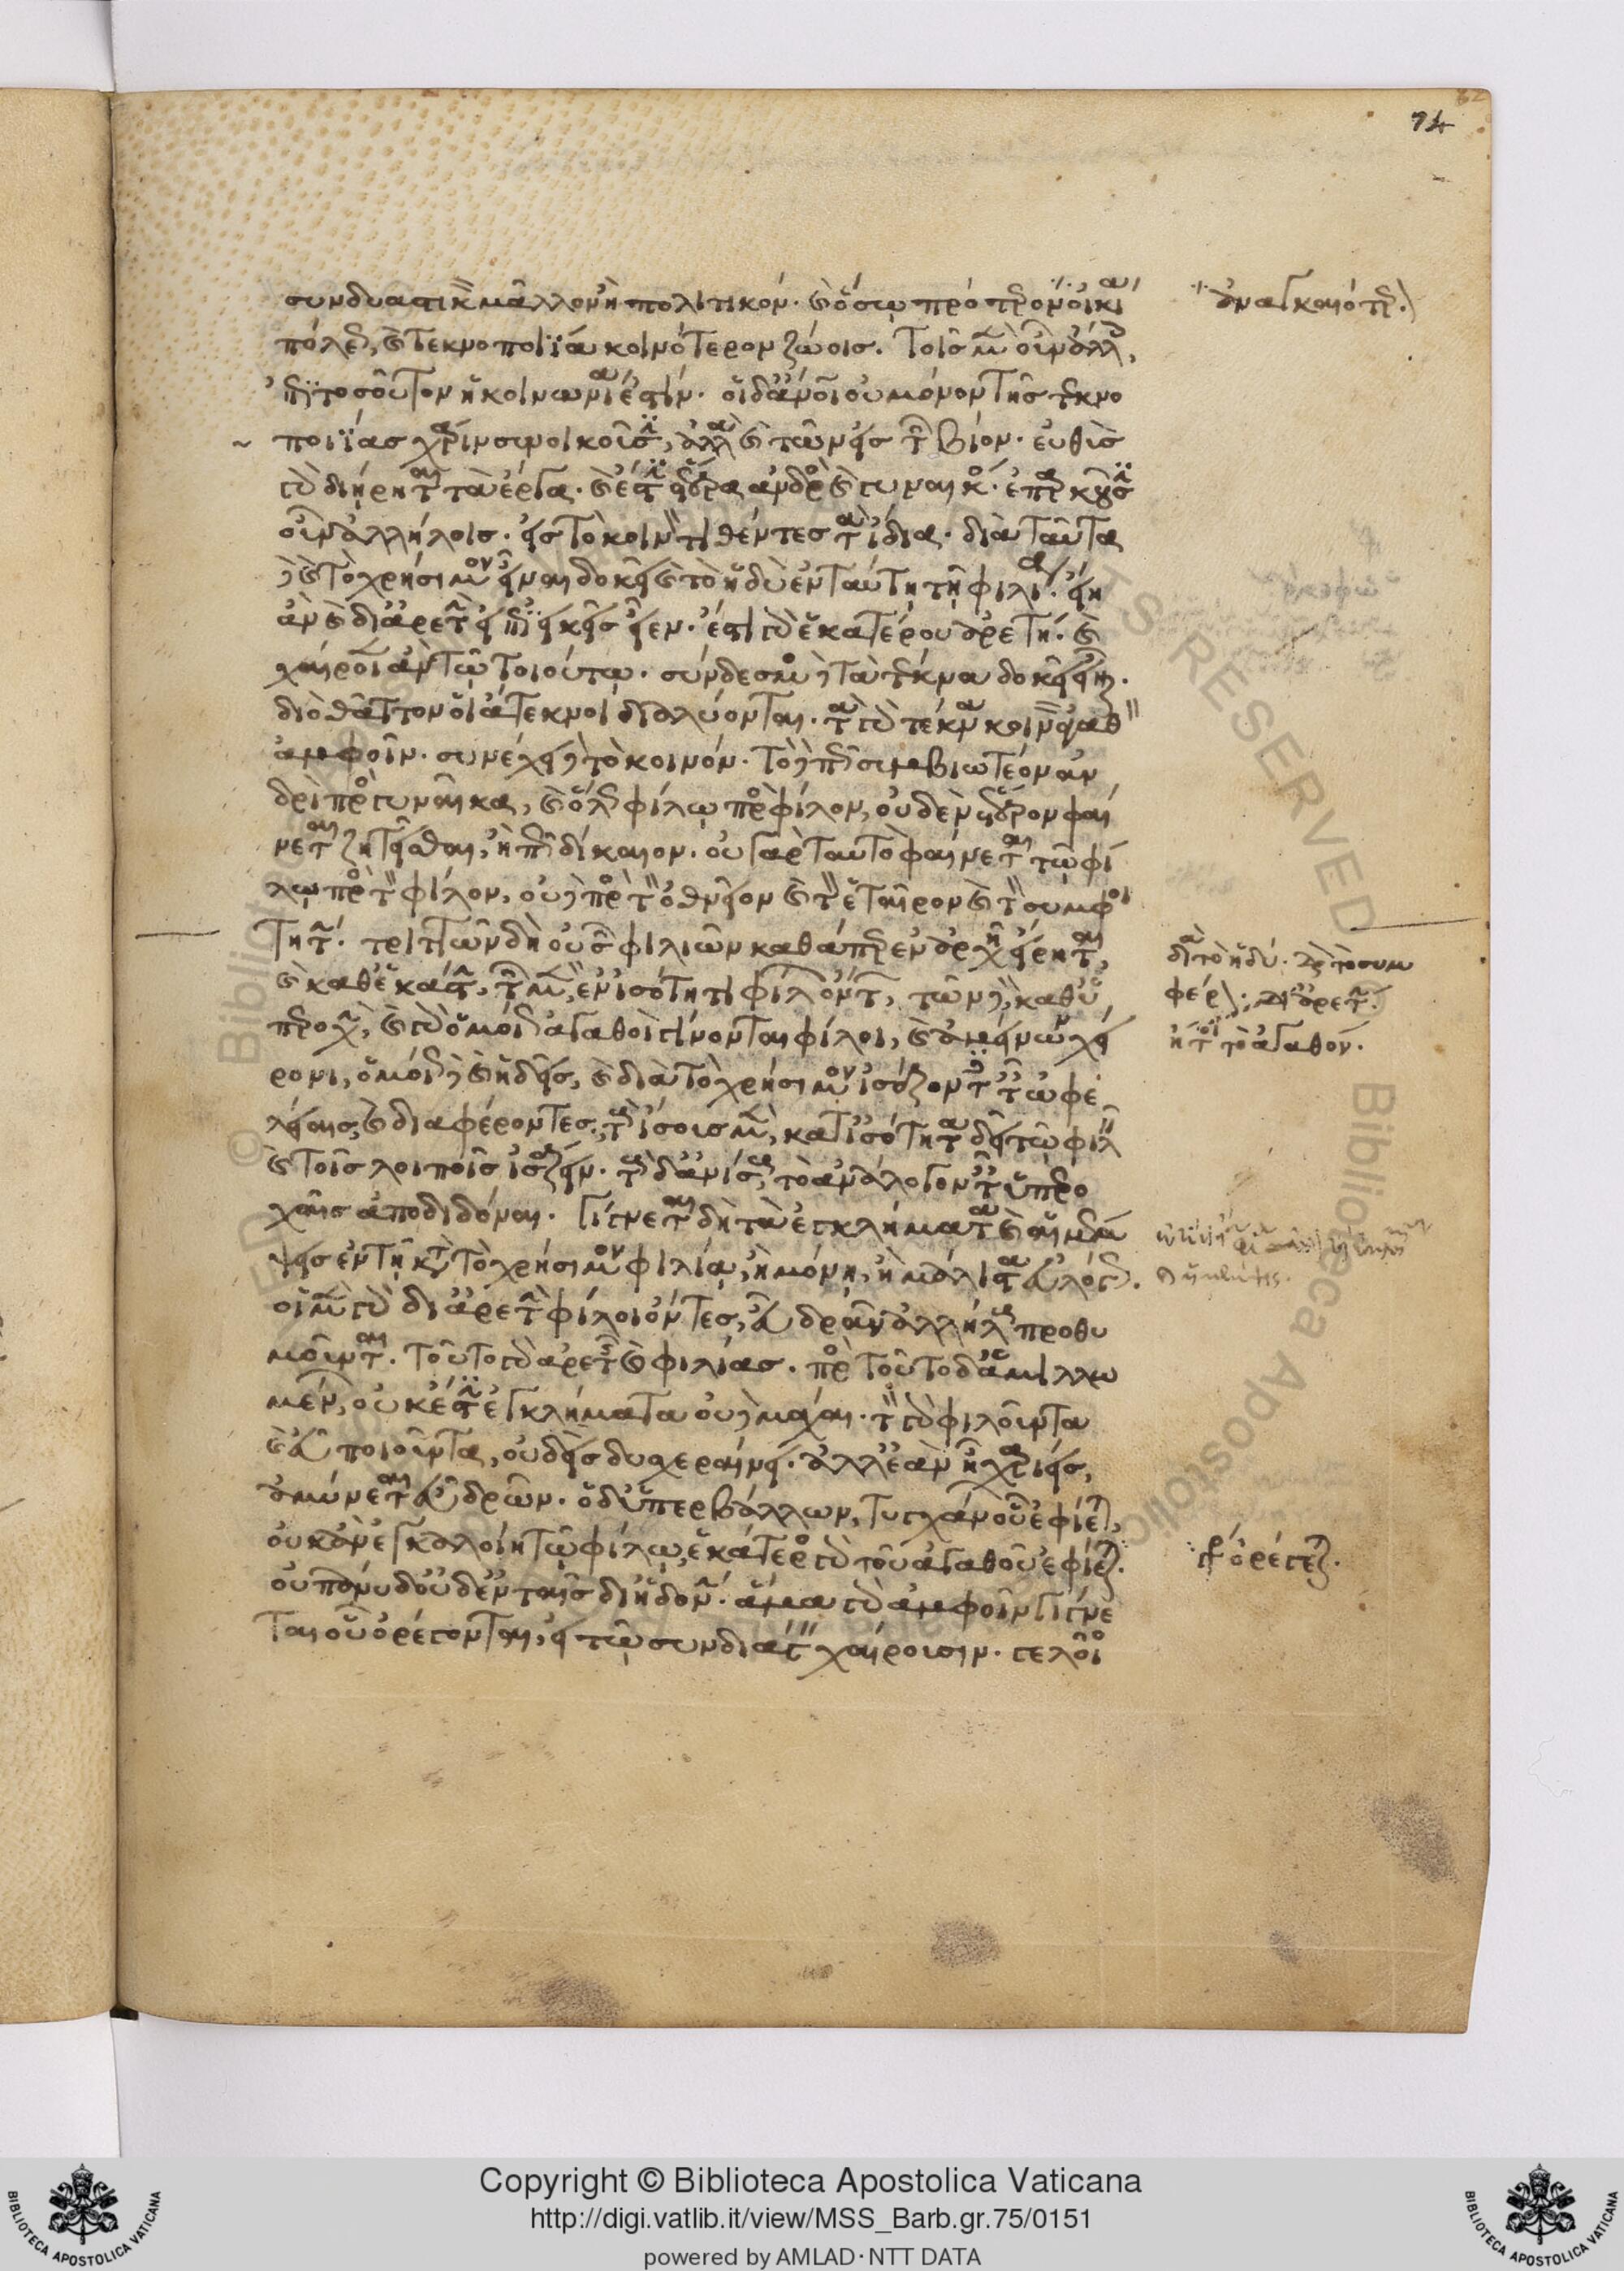 74
συνδυαστικὸν μᾶλλον ἢ πολιτικόν. καὶ ὅσῳ πρότερον οἰκία
πόλεως, καὶ τεκνοποιΐα κοινότερον ζώοις. τοῖς μὲν οὖν ἄλλοις,
ἐπὶ τοσοῦτον ἡ κοινωνία ἐστίν. οἱ δ' ἄνθρωποι οὐ μόνον τῆς τεκνο
ποιΐας χάριν συνοικοῦσιν, ἀλλὰ καὶ τῶν εἰς τὸν βίον. εὐθὺς
γὰρ διῄρηται τὰ ἔργα. καὶ ἔστιν ἕτερα ἀνδρὸς καὶ γυναικός. ἐπαρκοῦσιν
οὖν ἀλλήλοις. εἰς τὸ κοινὸν τιθέντες τὰ ἴδια. διὰ ταῦτα
δὲ καὶ τὸ χρήσιμον εἶναι δοκεῖ καὶ τὸ ἡδὺ ἐν ταύτῃ τῇ φιλίᾳ. εἴη
ἂν καὶ δι' ἀρετὴν εἰ ἐπιεικεῖς εἶεν. ἔστι γὰρ ἑκατέρου ἀρετή. καὶ
χαίροιεν ἂν τῷ τοιούτῳ. σύνδεσμος δὲ τὰ τέκνα δοκεῖ εἶναι.
διὸ θᾶττον οἱ ἄτεκνοι διαλύονται. τὰ γὰρ τέκνα κοινὸν ἀγαθὸν
ἀμφοῖν. συνέχει δὲ τὸ κοινόν. τὸ δὲ πῶς συμβιωτέον ἀν
δρὶ πρὸς γυναῖκα, καὶ ὅλως φίλῳ πρὸς φίλον, οὐδὲν ἕτερον φαί
νεται ζητεῖσθαι, ἢ πῶς δίκαιον. οὐ γὰρ ταυτὸ φαίνεται τῷ φί
λῳ πρὸς τὸν φίλον, οὐδὲ πρὸς τὸν ὀθνεῖον καὶ τὸν ἑταῖρον καὶ τὸν συμφοι
τητήν. τριττῶν δὴ οὐσῶν φιλιῶν καθάπερ ἐν ἀρχῇ εἴρηται,
καὶ καθ' ἑκάστην, τῶν μὲν, ἐν ἰσότητι φίλων ὄντων, τῶν δὲ, καθ' ὑ
περοχήν, καὶ γὰρ ὁμοίως ἀγαθοὶ γίνονται φίλοι, καὶ ἀμείνων χεί
ρονι, ὁμοίως δὲ καὶ ἡδεῖς, καὶ διὰ τὸ χρήσιμον ἰσάζοντες ταῖς ὠφε
λείαις, καὶ διαφέροντες. τοὺς ἴσους μὲν, κατ' ἰσότητα δεῖ τῷ φιλεῖν
καὶ τοῖς λοιποῖς ἰσάζειν. τοὺς δ' ἀνίσους, τὸ ἀνάλογον ταῖς ὑπερο
χαῖς ἀποδιδόναι. γίγνεται δὴ τὰ ἐγκλήματα καὶ αἱ μέμ
ψεις ἐν τῇ κατὰ τὸ χρήσιμον φιλίᾳ, ἢ μόνῃ, ἢ μάλιστα εὐλόγως.
οἱ μὲν γὰρ δι' ἀρετὴν φίλοι ὄντες, εὖ δρᾶν ἀλλήλους προθυ
μοῦνται. τοῦτο γὰρ ἀρετῆς καὶ φιλίας. πρὸς τοῦτο δ' ἁμιλλω
μένων, οὐκ ἔστιν ἐγκλήματα οὐδὲ μάχαι. τὸν γὰρ φιλοῦντα
καὶ εὖ ποιοῦντα, οὐδεὶς δυσχεραίνει. ἀλλ' ἐὰν ᾖ χαρίεις,
ἀμύνεται εὖ δρῶν. ὁ δ' ὑπερβάλλων, τυγχάνων οὗ ἐφίεται,
οὐκ ἂν ἐγκαλοίη τῷ φίλῳ, ἑκάτερος γὰρ τοῦ ἀγαθοῦ ἐφίεται.
οὐ πάνυ δ' οὐδ' ἐν τοῖς δι' ἡδονήν. ἅμα γὰρ ἀμφοῖν γίγνε
ται οὗ ὀρέγονται, εἰ τῷ συνδιάγειν χαίρουσιν. γελοῖος
ἀναγκαιότερον
διὰ τὸ ἡδύ. διὰ τὸ συμ
φέρον. δι' ἀρετήν.
ἤτοι τὸ ἀγαθόν.
γρ. ὀρέγεται.
Copyright © Biblioteca Apostolica Vaticana
http://digi.vatlib.it/view/MSS_Barb.gr.75/0151
powered by AMLAD·NTT DATA
BIBLIOTECA APOSTOLICA VATICANA
BIBLIOTECA APOSTOLICA VATICANA